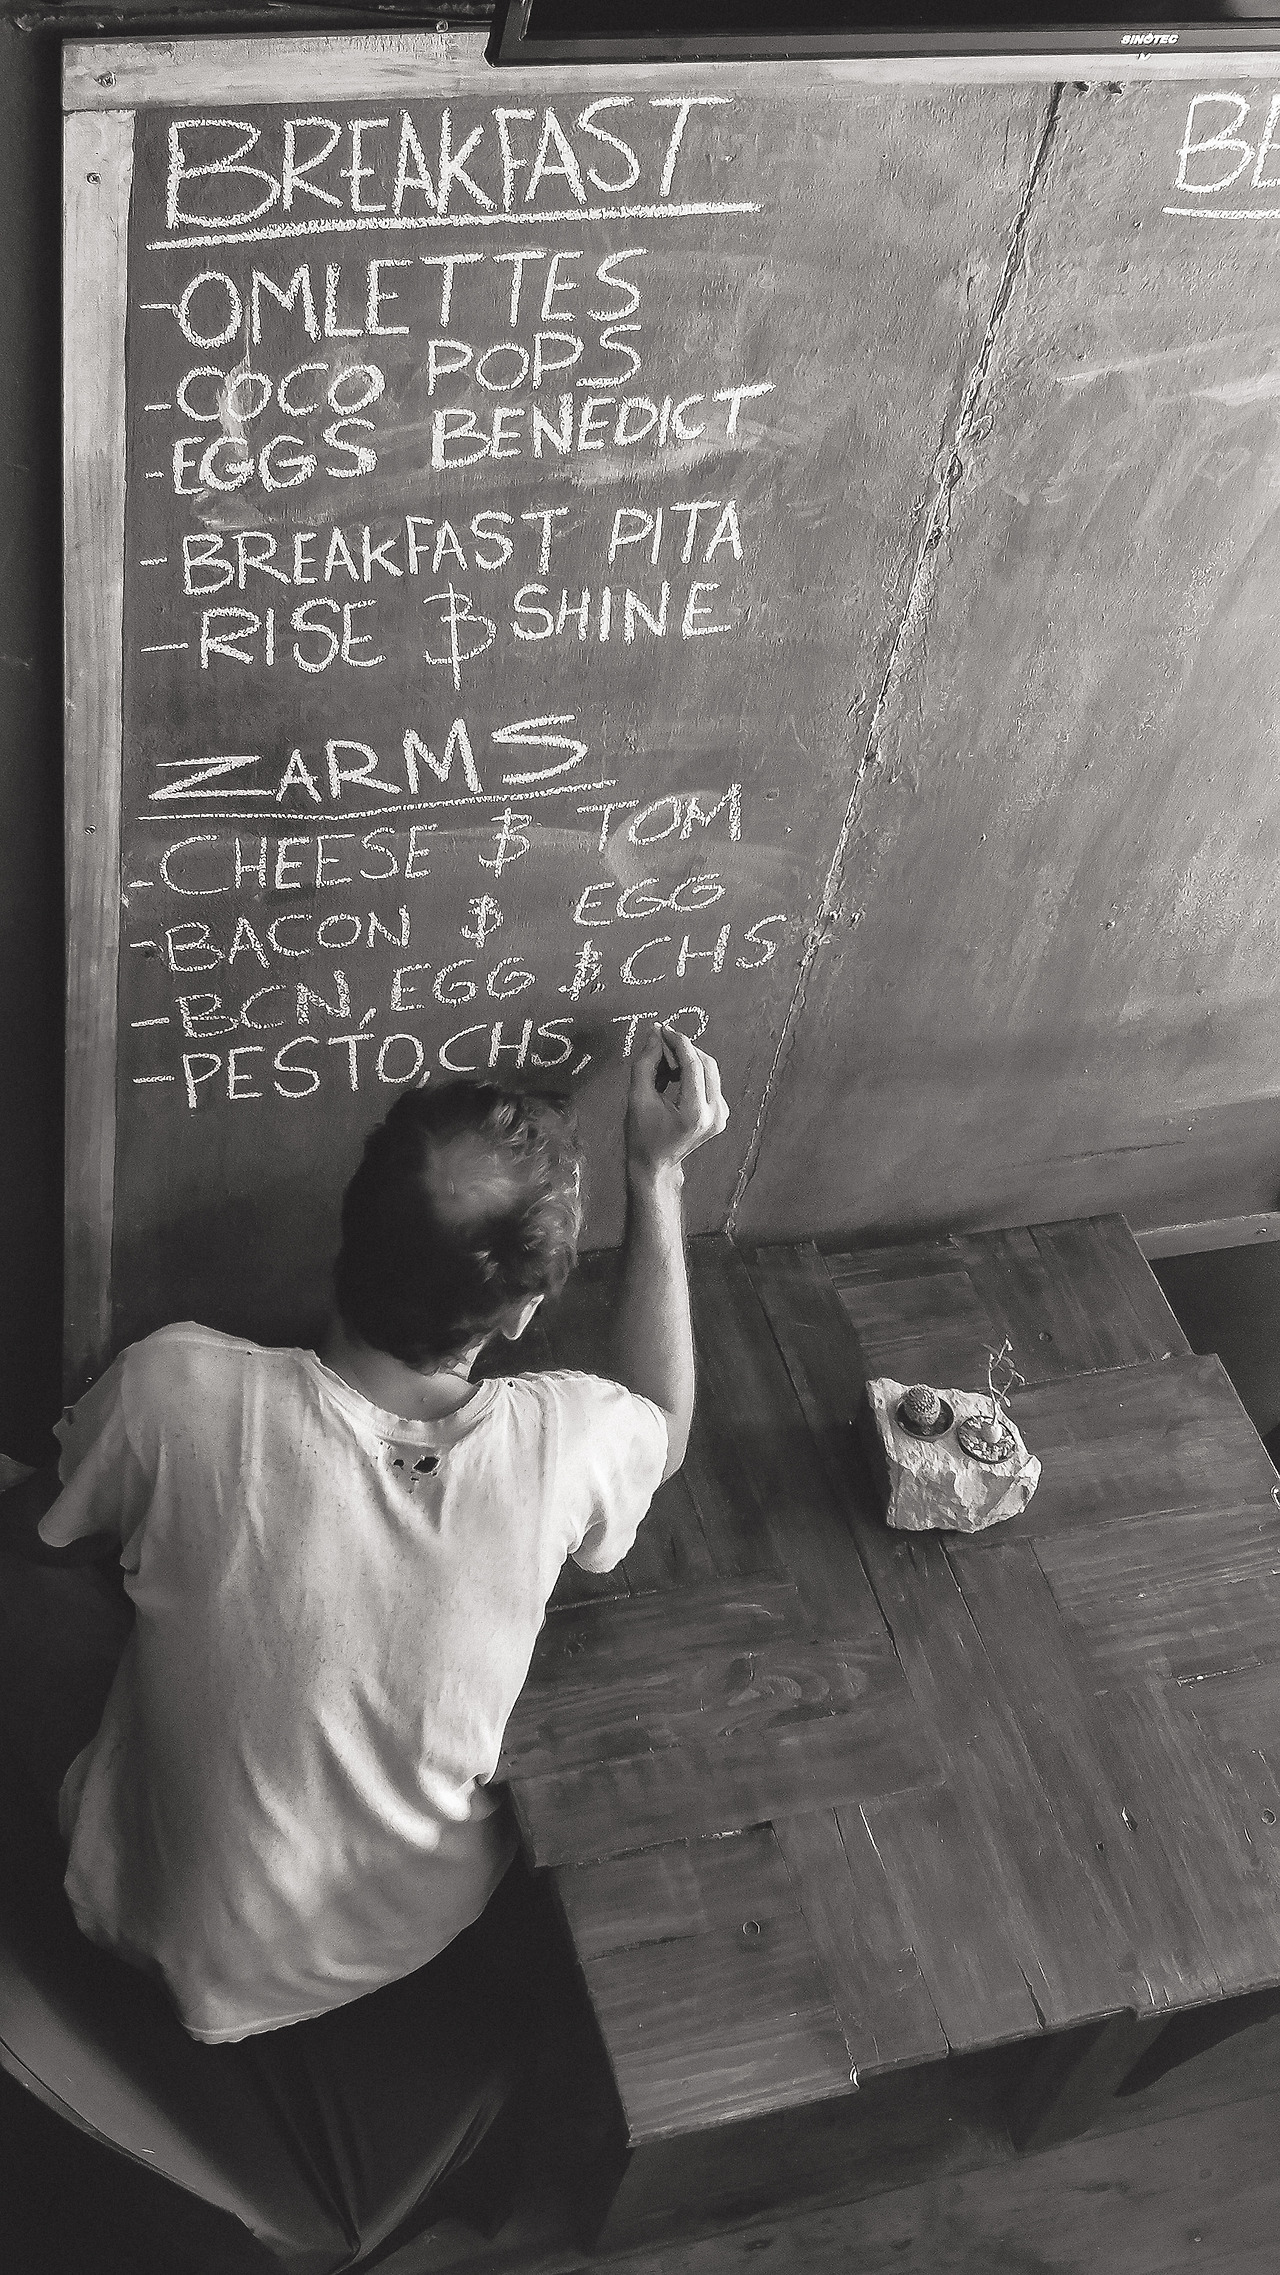 SINOTEC
BREAKFAST
-OMLETTES
-COCO POPS
-EGGS BENEDICT
-BREAKFAST PITA
-RISE & SHINE
ZARMS
-CHEESE & TOM
-BACON & EGG
-BCN, EGG & CHS
-PESTO, CHS, TO
BE